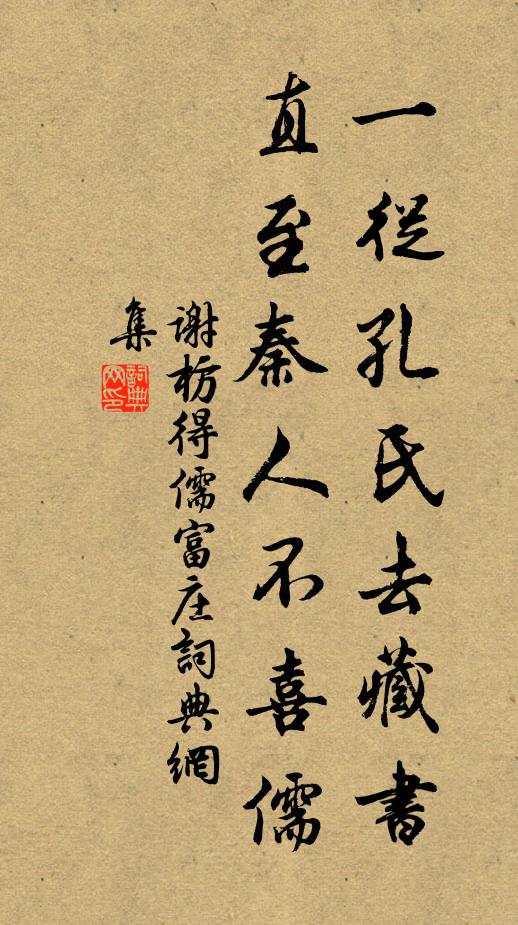 一從孔氏去藏書
直至秦人不喜儒
謝枋得儒富庄詞典網
集
詞典
网印